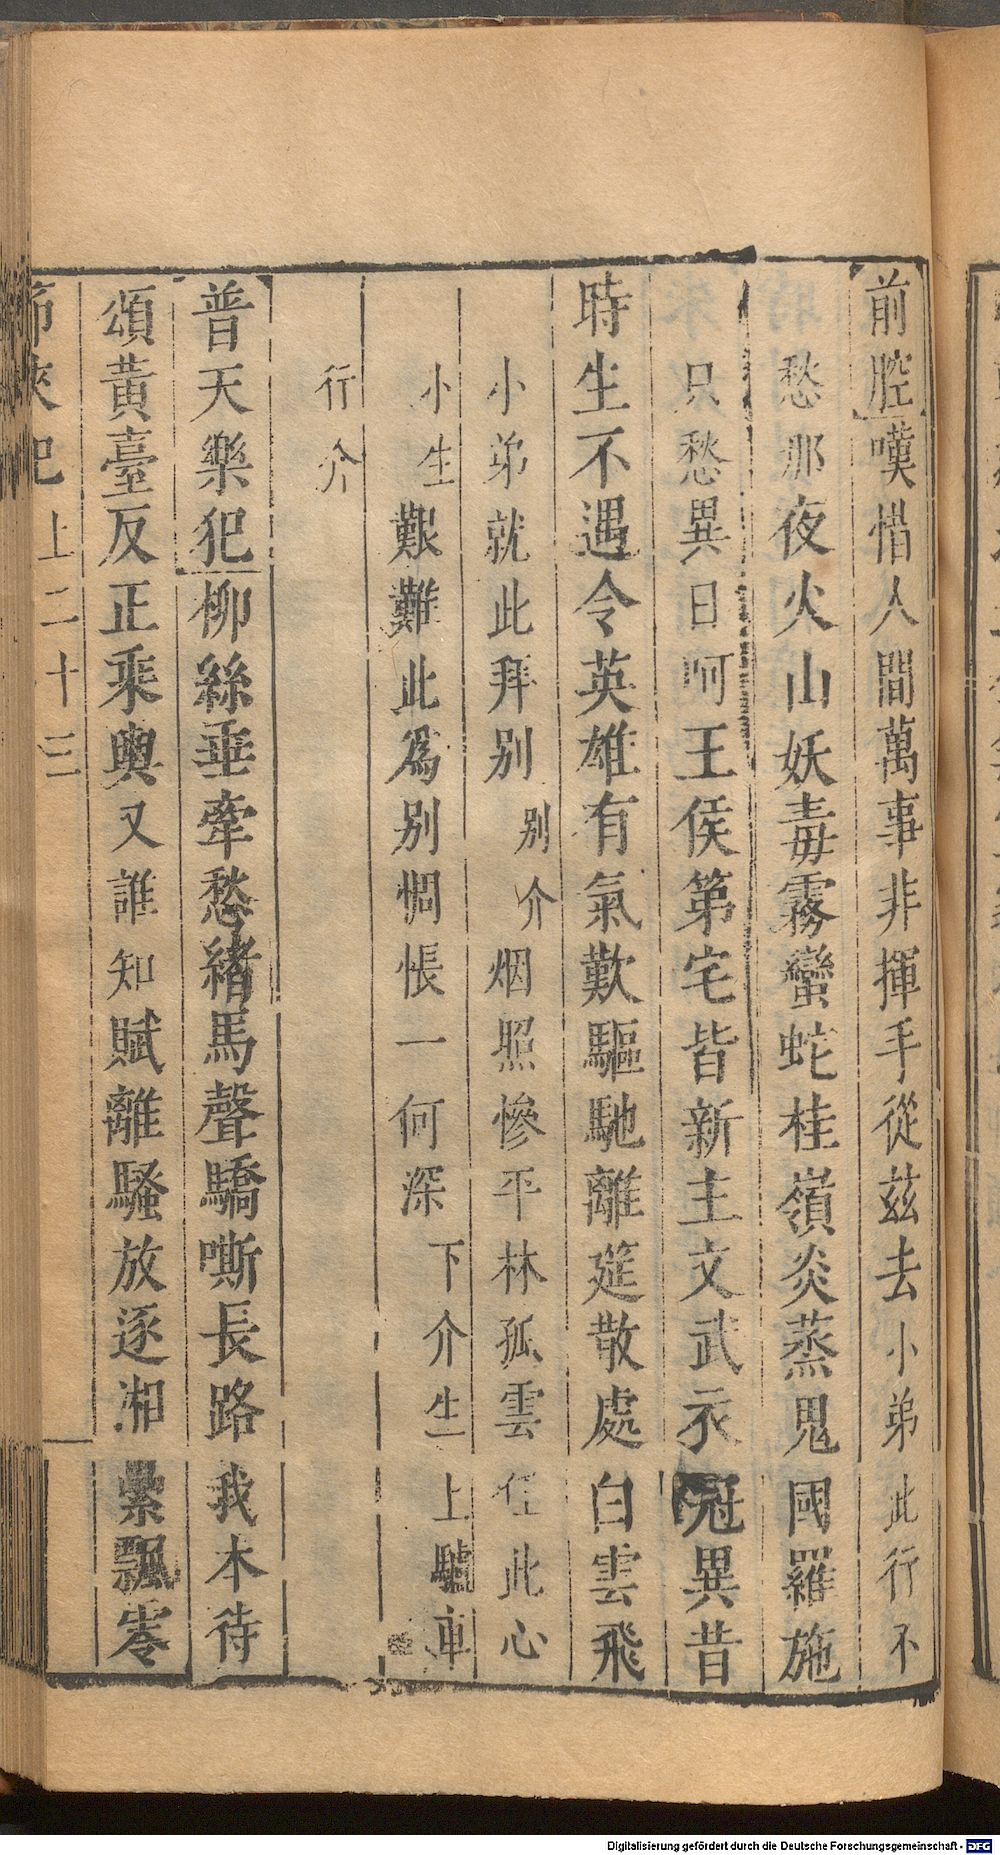 前腔嘆惜人間萬事非揮手從茲去小弟此行不
愁那夜火山妖毒霧蠻蛇桂嶺炎蒸鬼國羅施
只愁異日呵王侯第宅皆新主文武衣冠異昔
時生不遇令英雄有氣歎驅馳離筵散處白雲飛
小弟就此拜别别介烟照慘平林孤雲任此心
小生艱難此爲别惆悵一何深下介生上驢車
行介
普天樂犯柳絲垂牽愁緒馬聲驕嘶長路我本待
頌黃臺反正乘輿又誰知賦離騷放逐湘纍飄零
節俠記上二十三
Digitalisierung gefördert durch die Deutsche Forschungsgemeinschaft - DFG